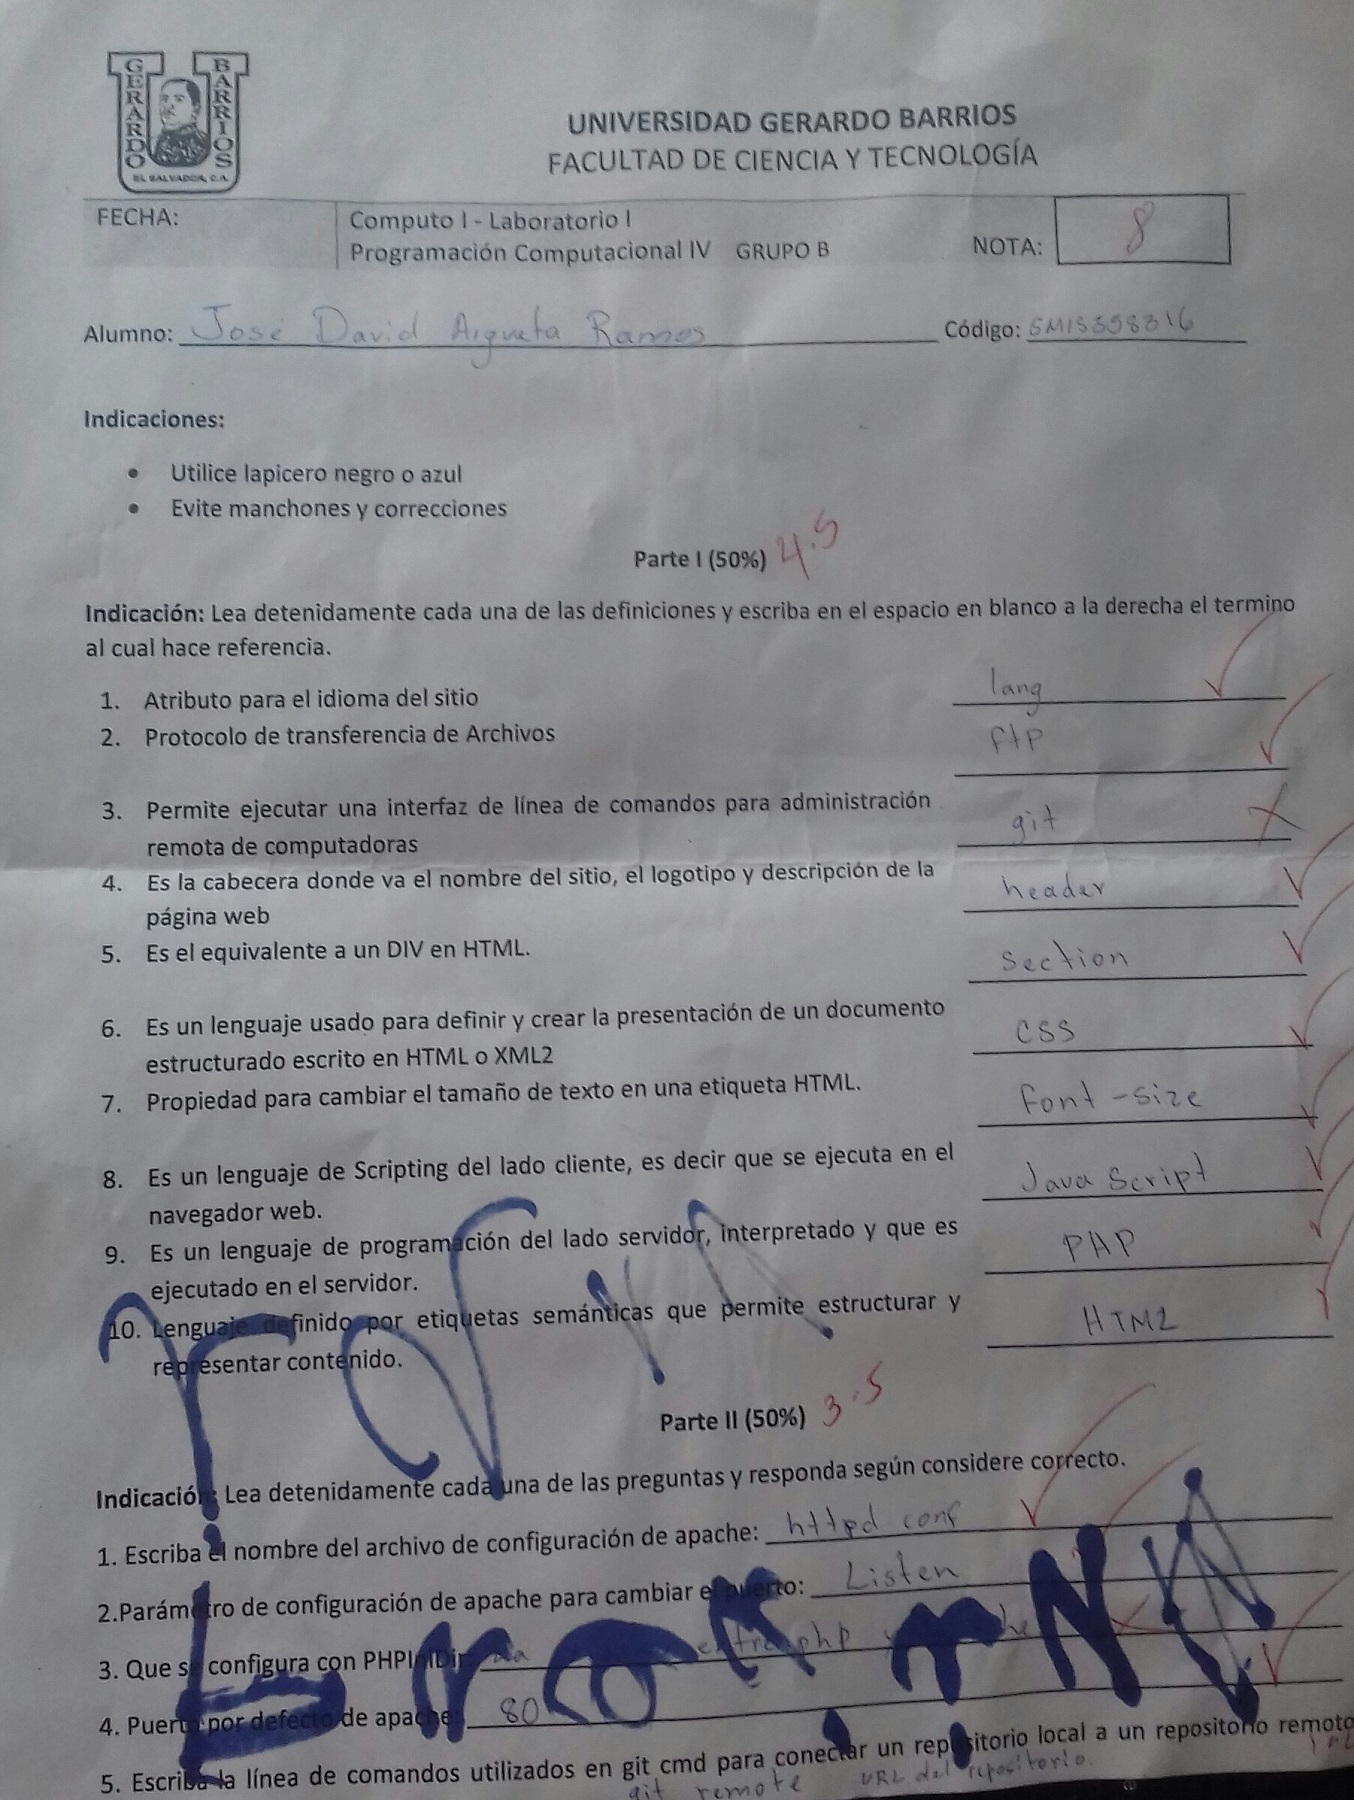 GERARDO BARRIOS
EL SALVADOR, C.A.
UNIVERSIDAD GERARDO BARRIOS
FACULTAD DE CIENCIA Y TECNOLOGÍA
FECHA:
Computo I - Laboratorio I
Programación Computacional IV GRUPO B
NOTA: 8
Alumno: José David Argueta Ramos Código: SMIS358316
Indicaciones:
• Utilice lapicero negro o azul
• Evite manchones y correcciones
Parte I (50%) 4.5
Indicación: Lea detenidamente cada una de las definiciones y escriba en el espacio en blanco a la derecha el termino
al cual hace referencia.
1. Atributo para el idioma del sitio lang
2. Protocolo de transferencia de Archivos ftp
3. Permite ejecutar una interfaz de línea de comandos para administración
remota de computadoras git
4. Es la cabecera donde va el nombre del sitio, el logotipo y descripción de la
página web header
5. Es el equivalente a un DIV en HTML. section
6. Es un lenguaje usado para definir y crear la presentación de un documento
estructurado escrito en HTML o XML2 CSS
7. Propiedad para cambiar el tamaño de texto en una etiqueta HTML. font-size
8. Es un lenguaje de Scripting del lado cliente, es decir que se ejecuta en el
navegador web. Java Script
9. Es un lenguaje de programación del lado servidor, interpretado y que es
ejecutado en el servidor. PHP
10. Lenguaje definido por etiquetas semánticas que permite estructurar y
representar contenido. HTML
Parte II (50%) 3.5
Indicación: Lea detenidamente cada una de las preguntas y responda según considere correcto.
1. Escriba el nombre del archivo de configuración de apache: httpd conf
2.Parámetro de configuración de apache para cambiar el puerto: Listen
3. Que se configura con PHPIniDir: php
4. Puerto por defecto de apache: 80
5. Escriba la línea de comandos utilizados en git cmd para conectar un repositorio local a un repositorio remoto
git remote URL del repositorio.